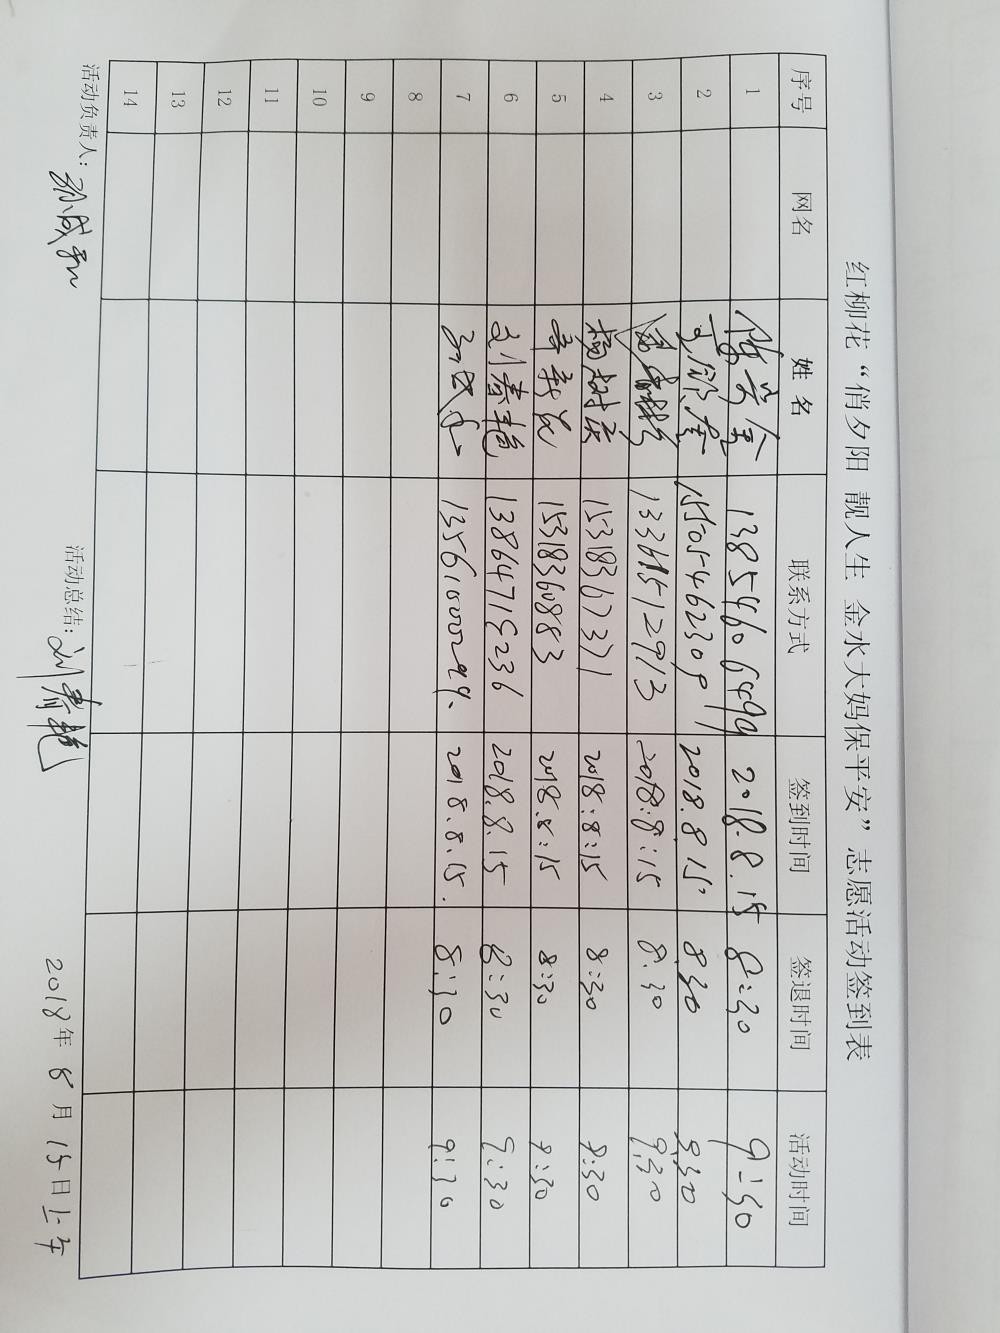 红柳花“俏夕阳 靓人生 金水大妈保平安”志愿活动签到表
序号 网名 姓名 联系方式 签到时间 签退时间 活动时间
1 13854606499 2018.8.15 8:30 9:30
2 15505462309 2018.8.15 8:30 9:30
3 2018:8:15 8:30 9:30
4 杨树庆 15318367371 2018:8:15 8:30 9:30
5 15318360883 2018:8:15 8:30 9:30
6 刘春艳 13864715236 2018.8.15 8:30 9:30
7 孙成和 13561000294 2018.8.15. 8:30 9:30
8
9
10
11
12
13
14
活动负责人: 孙成和 活动总结: 刘春艳 2018年8月15日上午